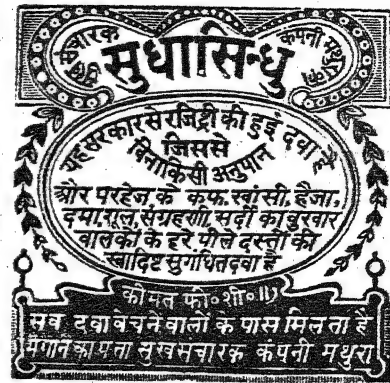 सुखसंचारक कंपनी मथुरा का
सुधासिन्धु
यह सरकार से रजिष्ट्री की हुई दवा है
जिससे
विनाकिसी अनुपान
और परहेज के कफ, खांसी, हैजा,
दमा, शूल, संग्रहणी, सर्दी का बुखार
बालकों के हरे पीले दस्तों की
स्वादिष्ट सुगंधित दवा है
कीमत फी॰ शी॰ ॥)
सब दवा बेचने वालों के पास मिलता है
मंगाने का पता सुखसंचारक कंपनी मथुरा